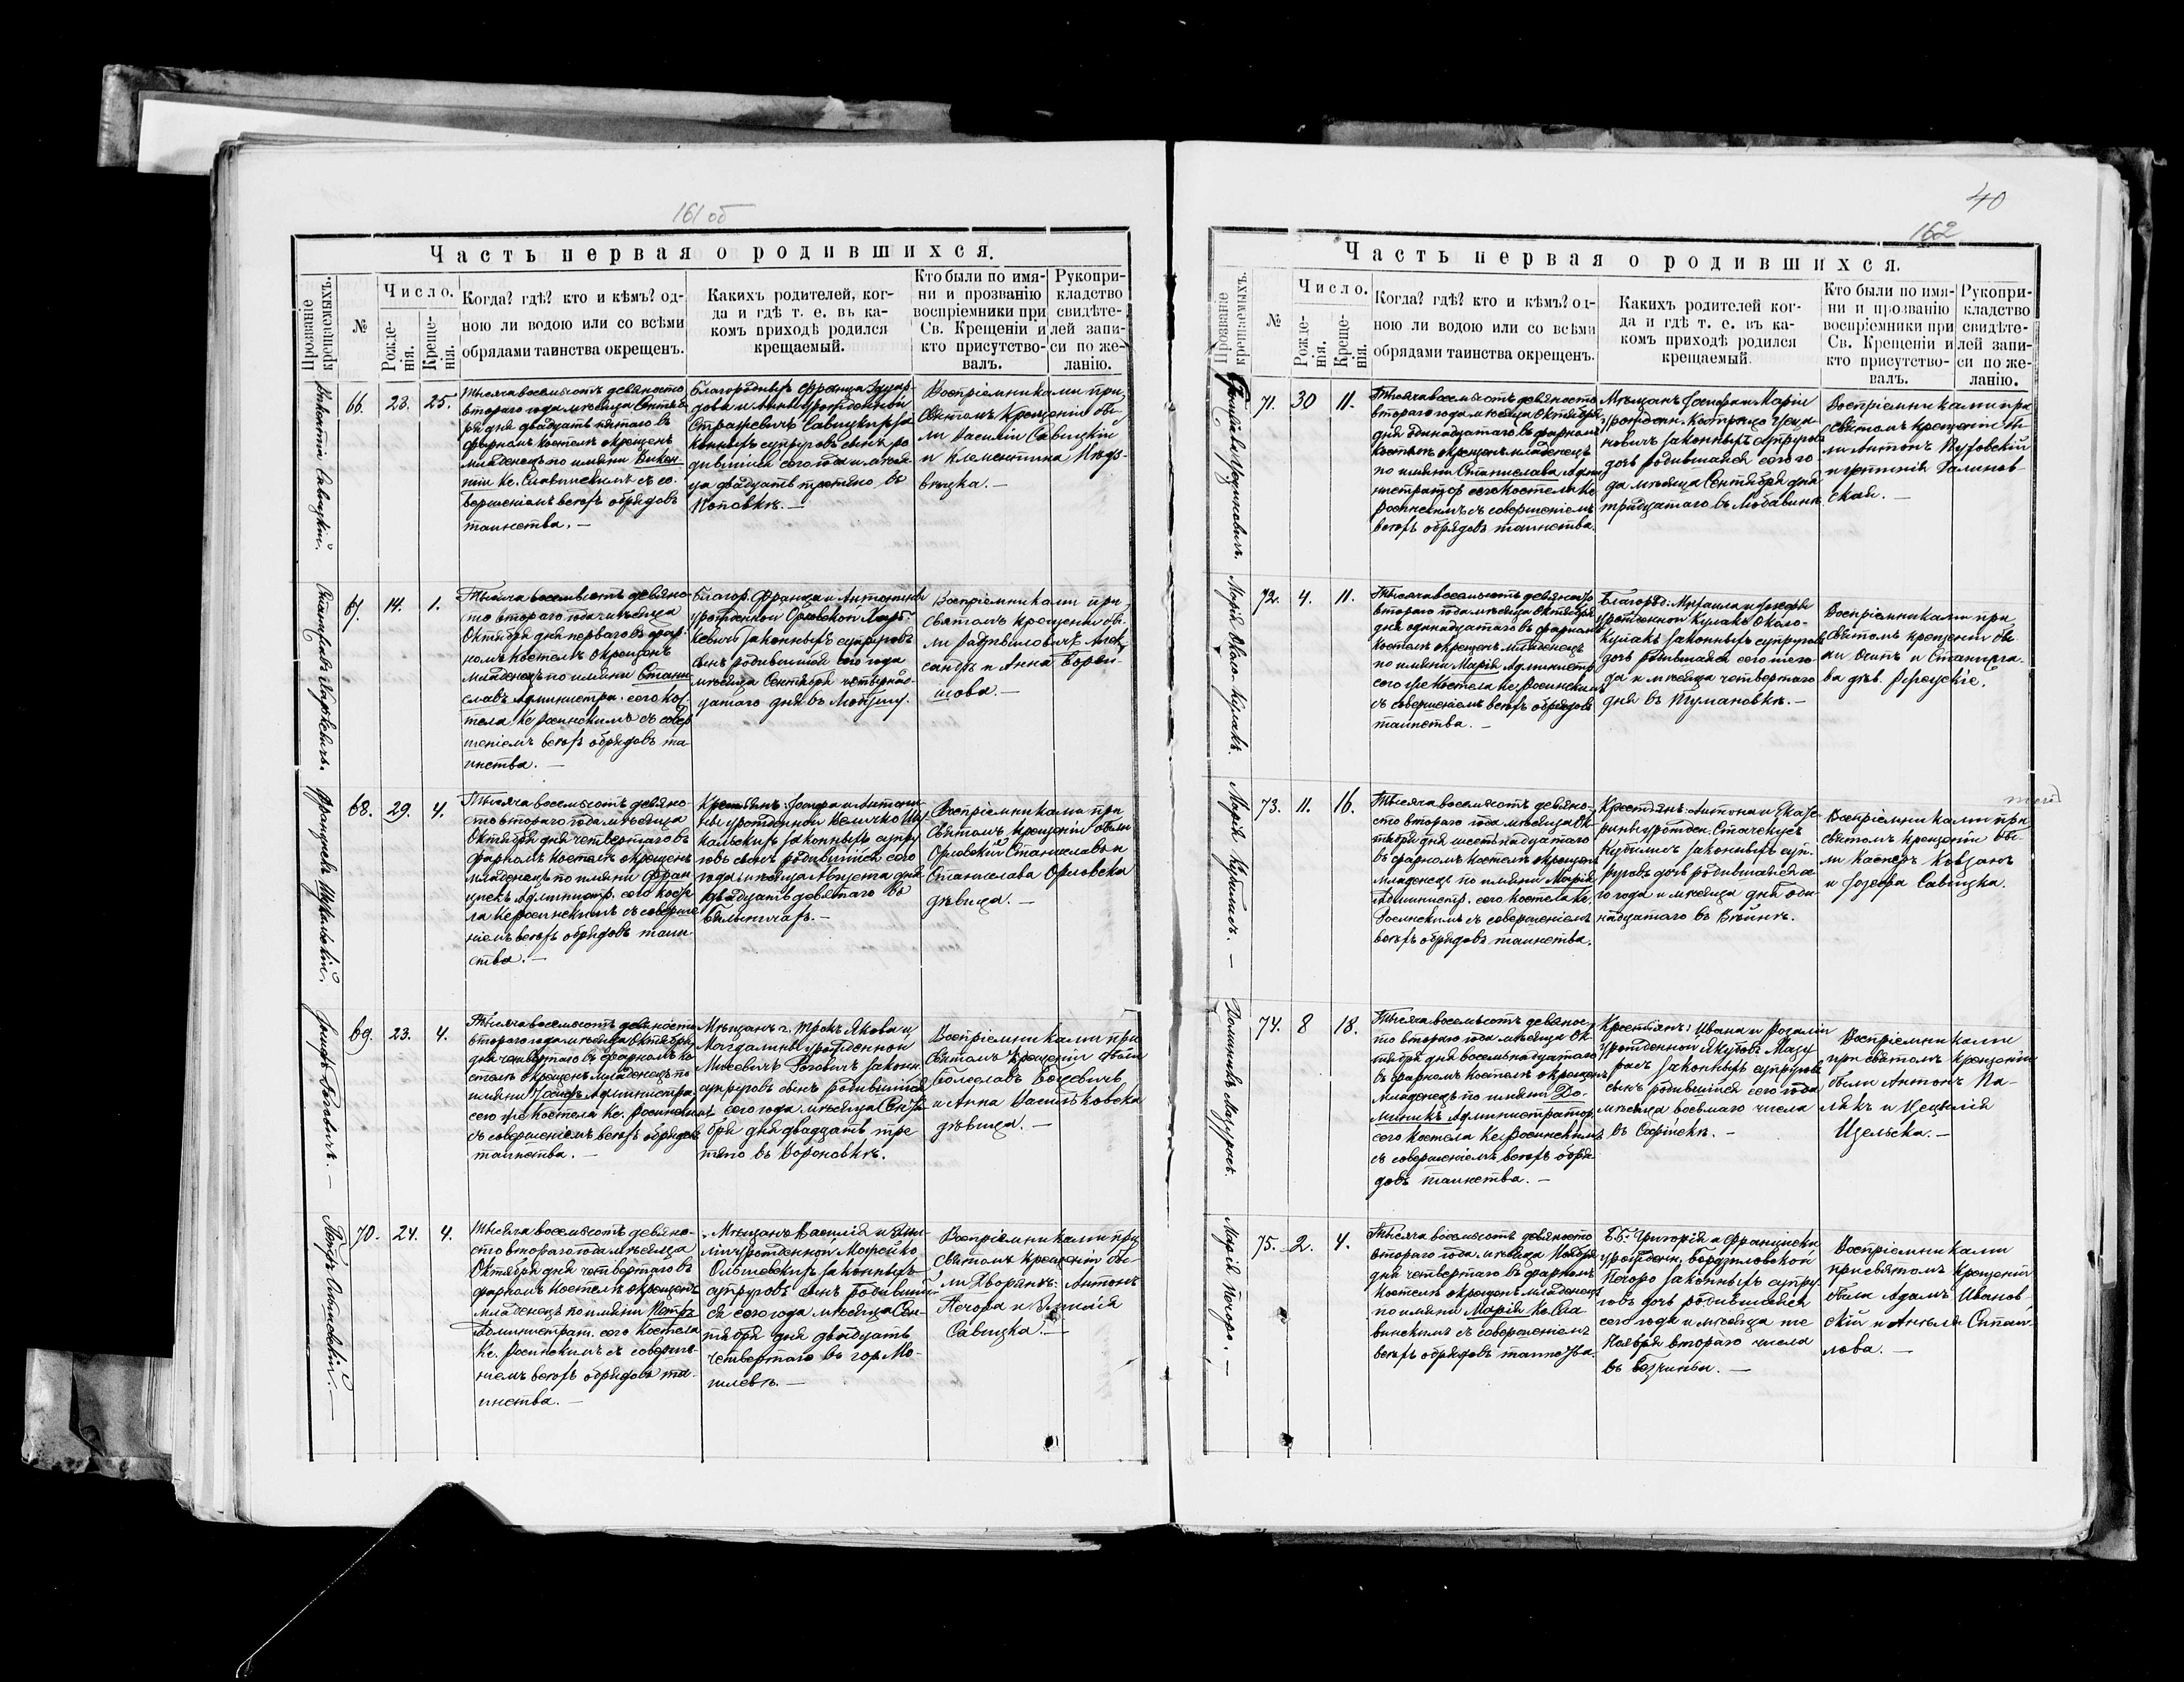 161 об
Часть первая о родившихся.
Прозваніе крещаемыхъ.
№
Число.
Рожде-
нія.
Креще-
нія.
Когда? гдѣ? кто и кѣмъ? од-
ною ли водою или со всѣми
обрядами таинства окрещенъ.
Какихъ родителей, ког-
да и гдѣ т. е. въ ка-
комъ приходѣ родился
крещаемый.
Кто были по имя-
ни и прозванію
воспріемники при
Св. Крещеніи и
кто присутство-
валъ.
Рукопри-
кладство
свидѣте-
лей запи-
си по же-
ланію.
Викентій Савицкій.
66.
23.
25.
Тысяча восемьсотъ девяносто
втораго года мѣсяца Сентяб
ря дня двадцать пятаго въ
фарномъ костелѣ окрещенъ
младенецъ по имяни Викен
тій Кс. Славинскимъ съ со
вершеніемъ всехъ обрядовъ
таинства. —
Благородныхъ Франца Эдуар-
дова и Анны урожденной
Страшевичъ Савицкихъ за
конныхъ супруговъ сынъ ро
дившійся сего года и мѣся
ца двадцать третяго въ
Поповкѣ. —
Воспріемниками при
Святомъ Крещеніи бы-
ли Василій Савицкій
и Клементина
Станиславъ
67.
14.
1.
Тысяча восемьсотъ девяно-
сто втораго года мѣсяца
Октября дня перваго въ фар-
номъ костелѣ окрещенъ
младенецъ по имяни Стани-
славъ Администра. сего Кос
тела Кс Росинскимъ съ совер
шеніемъ всехъ обрядовъ та
инства. —
Благор. Франца и Антонины
урожденной Орловской
кевичъ законныхъ супруговъ
сынъ родившійся сего года
мѣсяца Сентября четырнад-
цатаго дня въ
Воспріемниками при
Святомъ крещеніи бы-
ли
сандръ и Анна
шова. —
Францишекъ
68.
29.
4.
Тысяча восемьсотъ девяно-
сто втораго года мѣсяца
Октября дня четвертаго въ
фарномъ костелѣ окрещенъ
младенецъ по имяни Фран
цишекъ Администр. сего Косте
ла Кс Росинскимъ съ соверше
ніемъ всехъ обрядовъ таин
ства. —
Крестьянъ: Іозефа и Антони
ны урожденной Величко
законныхъ супру
говъ сынъ родившійся сего
года мѣсяца Августа дня
двадцать девятаго въ
Бялыничахъ. —
Воспріемниками при
Святомъ крещеніи были
Орловскій Станиславъ и
Станислава Орловска
дѣвица. —
Іосифъ Роговичъ. —
69.
23.
4.
Тысяча восемьсотъ девяносто
втораго года мѣсяца Октября
дня четвертаго въ фарномъ ко
стелѣ окрещенъ младенецъ по
имяни Іосифъ Администра.
сего же костела Кс. Росинскимъ
съ совершеніемъ всехъ обрядовъ
таинства. —
Мѣщанъ г. Трокъ Якова и
Магдалины урожденной
Мисевичъ Роговичъ законн.
супруговъ сынъ родившійся
сего года мѣсяца Сентя
бря дня двадцать тре
тяго въ Вороновкѣ.
Воспріемниками при
Святомъ крещеніи были
Болеславъ
и Анна Васильковска
дѣвица. —
Петръ
70.
24.
4.
Тысяча восемьсотъ девяно-
сто втораго года мѣсяца
Октября дня четвертаго въ
фарномъ костелѣ окрещенъ
младенецъ по имяни Петръ
Администрат. сего Костела
Кс. Росинскимъ съ соверше-
ніемъ всехъ обрядовъ та-
инства. —
Мѣщанъ Василія и Эми-
ліи урожденной Мофейко
законныхъ
супруговъ сынъ родивший
ся сего года мѣсяца Сен
тября дня двадцать
четвертаго въ гор. Мо-
гилевѣ. —
Воспріемниками при
Святомъ крещеніи бы-
ли Дворянъ: Антонъ
Печора и Эмилія
Савицка. —
40
162
Часть первая о родившихся.
Прозваніе крещаемыхъ.
№
Число.
Рожде-
нія.
Креще-
нія.
Когда? гдѣ? кто и кѣмъ? од-
ною ли водою или со всѣми
обрядами таинства окрещенъ.
Какихъ родителей ког-
да и гдѣ т. е. въ ка-
комъ приходѣ родился
крещаемый.
Кто были по имя-
ни и прозванію
воспріемники при
Св. Крещеніи и
кто присутство-
валъ.
Рукопри-
кладство
свидѣте-
лей запи-
си по же-
ланію.
71.
30
11.
Тысяча восемьсотъ девяносто
втораго года мѣсяца Октября
дня одинадцатаго въ фарномъ
костелѣ окрещенъ младенецъ
по имяни Станислава Адми
нистратор. сего Костела Кс
Росинскимъ съ совершеніемъ
всехъ обрядовъ таинства.
Мѣщанъ Іозефа и Маріи
урожден.
новичъ законныхъ супругов
дочь родившаяся сего го
да мѣсяца Сентября дня
тридцатаго въ Любавинѣ.
Воспріемниками при
Святомъ крещеніи бы-
ли Антонъ
и
ская. —
Марія Около-Кулакъ.
72.
4.
11.
Тысяча восемьсотъ девяносто
втораго года мѣсяца Октября
дня одинадцатаго въ фарномъ
костелѣ окрещенъ младенецъ
по имяни Марія Администр.
сего же Костела Кс. Росинскимъ
съ совершеніемъ всехъ обрядовъ
таинства. —
Благород: Михаила и Іозефы
урожденной Кулакъ Около-
Кулакъ законныхъ супругов
дочь родившаяся сего го
да и мѣсяца четвертаго
дня въ Тумановкѣ. —
Воспріемниками при
Святомъ крещеніи бы-
ли Осипъ и Станисла-
ва дѣв.
Марія Кубилисъ. —
73.
11.
16.
Тысяча восемьсотъ девяно-
сто втораго года мѣсяца Ок-
тября дня шестнадцатаго
въ фарномъ костелѣ окрещенъ
младенецъ по имяни Марія
Администр. сего костела Кс.
Росинскимъ съ совершеніемъ
всехъ обрядовъ таинства.
Крестьянъ: Антона и Кате
рины урожден. Стачекусъ
Кубилисъ законныхъ суп.
руговъ дочь родившаяся се
го года и мѣсяца дня оди
надцатаго въ
Воспріемниками при
святомъ крещеніи бы-
ли Касперъ Ковзанъ
и Іозефа Савицка.
Доминикъ Мазуросъ.
74.
8
18.
Тысяча восемьсотъ девянос
то втораго года мѣсяца Ок-
тября дня восемьнадцатаго
въ фарномъ костелѣ окрещенъ
младенецъ по имяни До-
миникъ Администратор.
сего костела Кс. Росинскимъ
съ совершеніемъ всехъ обря
довъ таинства. —
Крестьянъ: Ивана и Розаліи
урожденной Якубовъ Мазу
росъ законныхъ супруговъ
сынъ родившійся сего года
мѣсяца восьмаго числа
въ Софіекѣ. —
Воспріемниками
при святомъ крещеніи
были Антонъ Па-
лякъ и Цецилія
Цельска. —
Марія Печоро. —
75.
2.
4.
Тысяча восемьсотъ девяносто
втораго года мѣсяца Ноября
дня четвертаго въ фарномъ
костелѣ окрещенъ младенецъ
по имяни Марія Кс. Сла
винскимъ съ совершеніемъ
всехъ обрядовъ таинства.
ББ: Григорія и Францишки
урожден:
Печоро законныхъ супру
говъ дочь родившаяся
сего года и мѣсяца же
Ноября втораго числа
въ
Воспріемниками
при святомъ крещеніи
были Адамъ Иванов-
скій и Анеля
лова. —